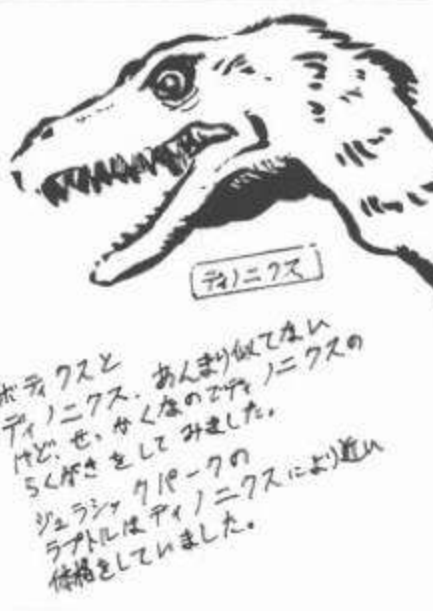 ディノニクス
ボディクスと
ディノニクス、あんまり似てない
けど、せっかくなのでディノニクスの
らくがきをしてみました。
ジュラシックパークの
ラプトルはディノニクスにより近い
体格をしていました。